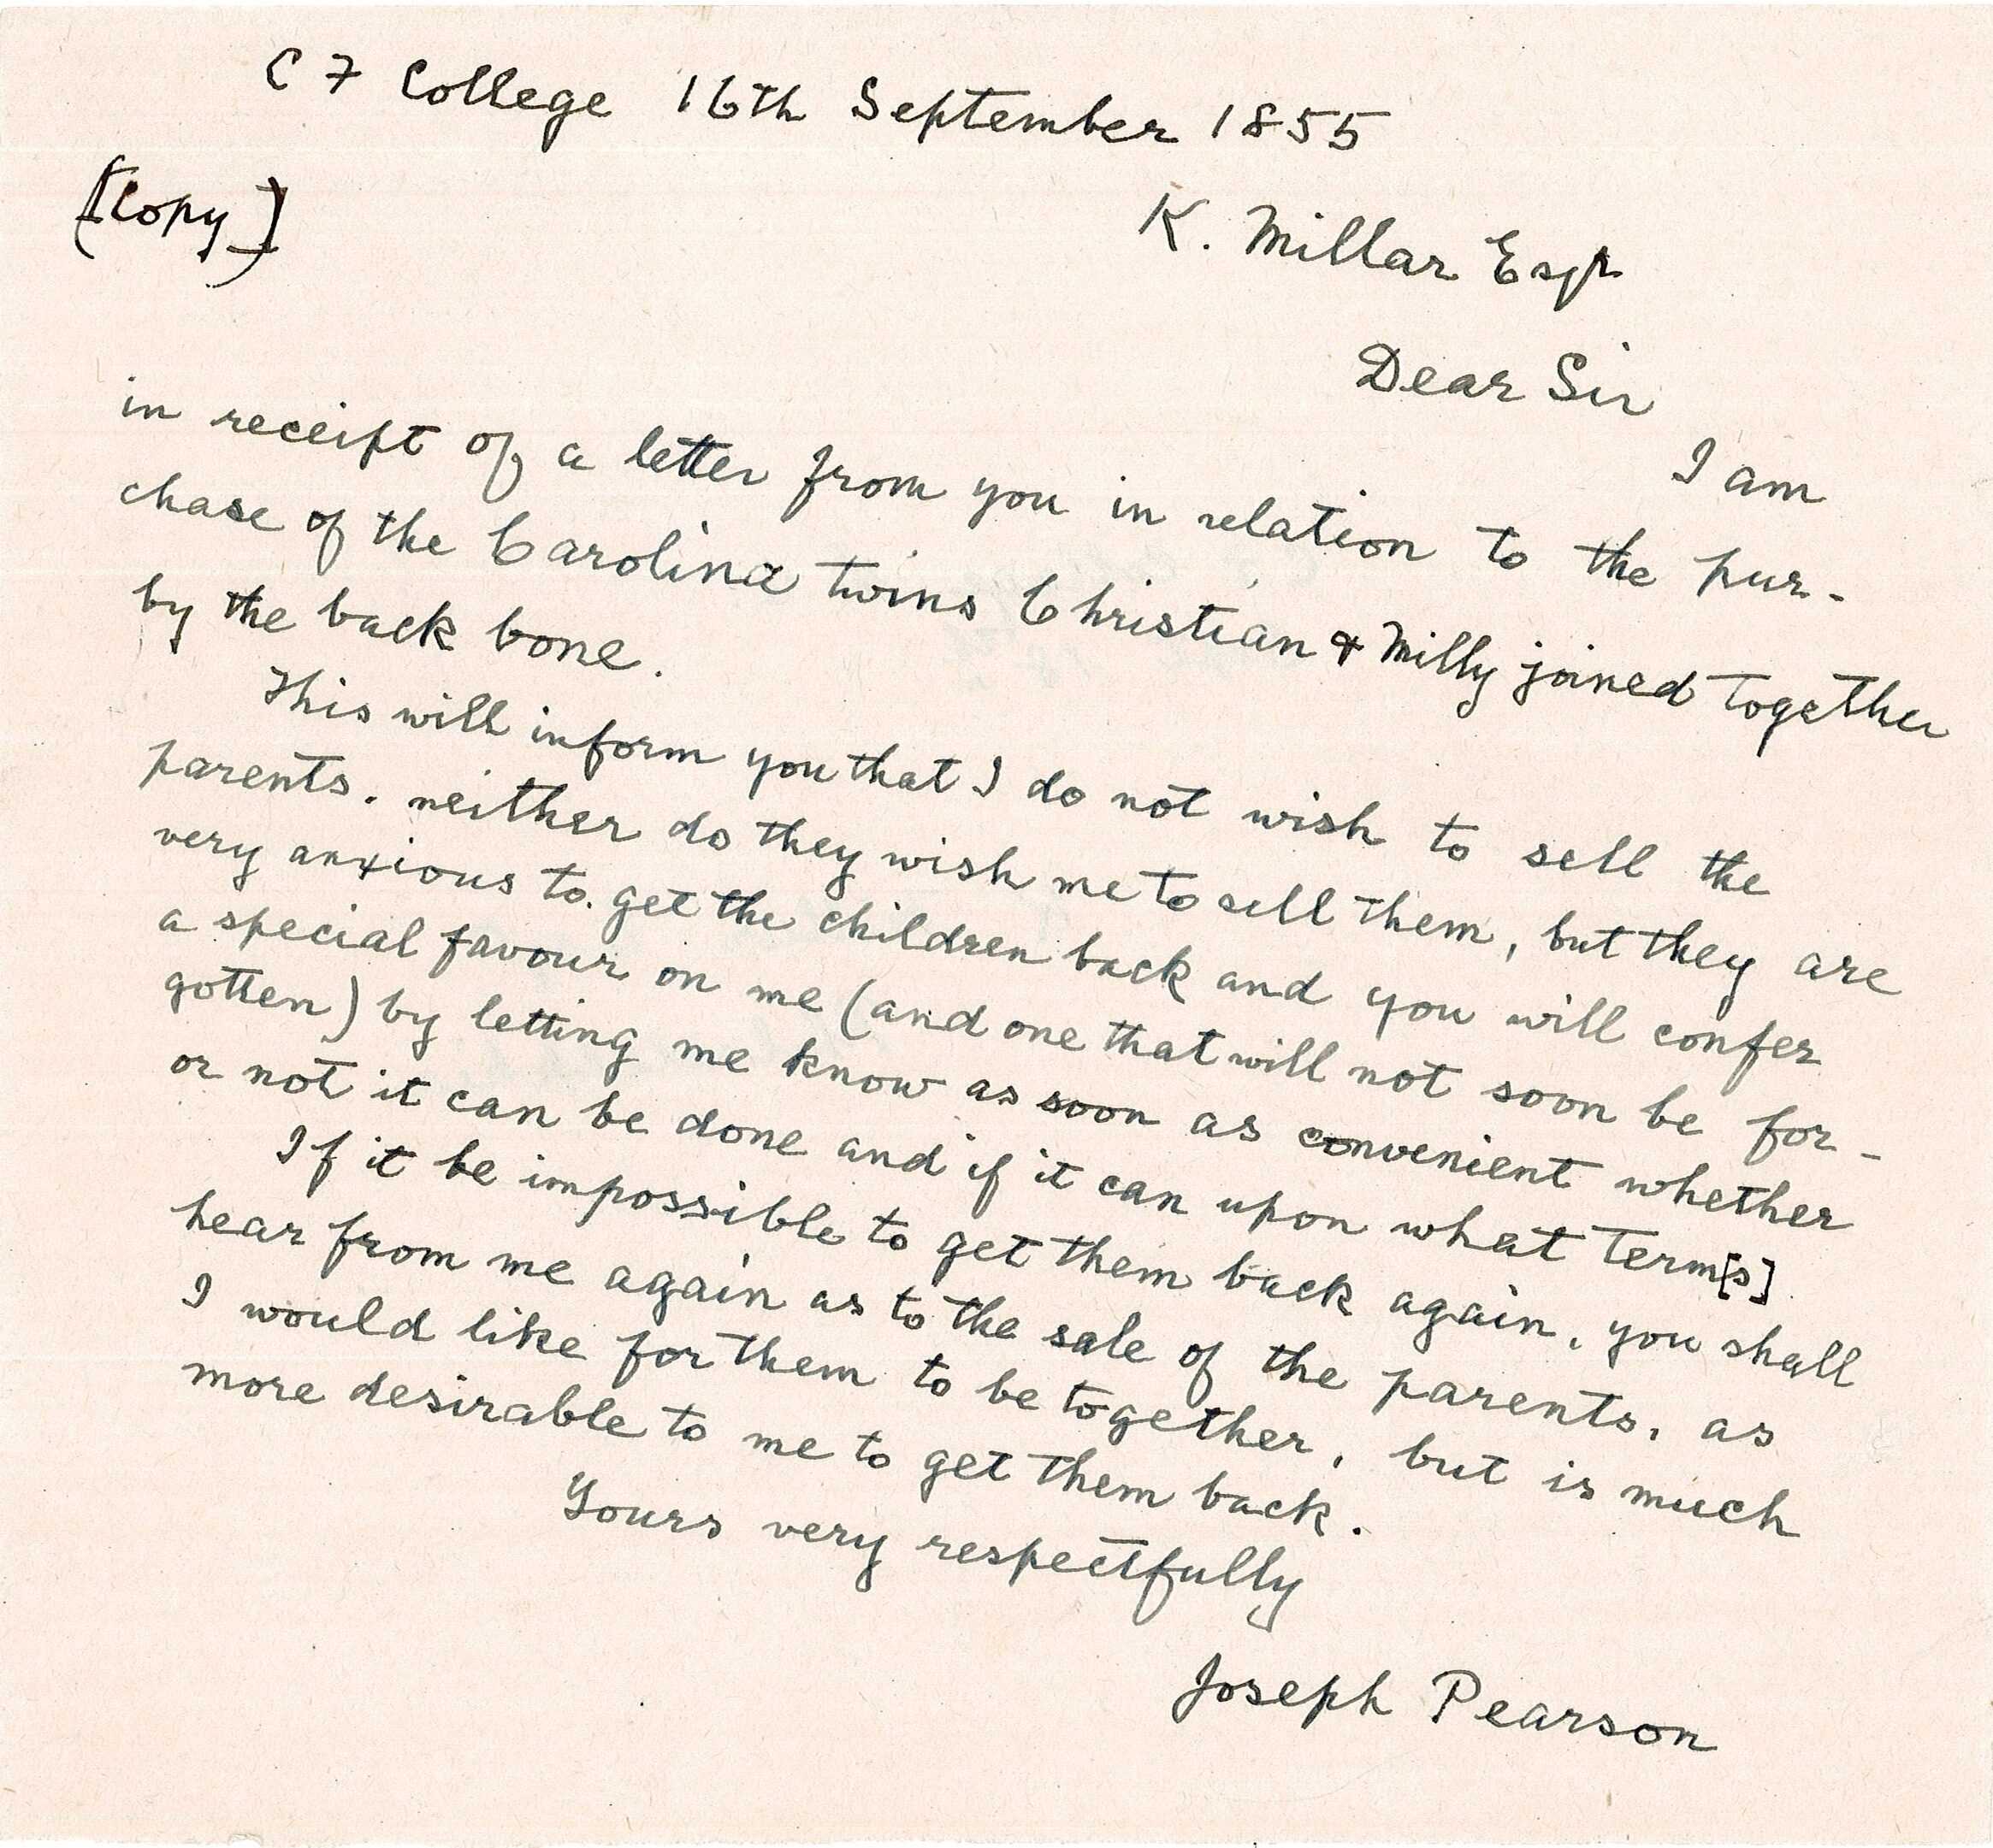 C 7 College 16th September 1855
[Copy]
K. Millar Esqr
Dear Sir
I am
in receipt of a letter from you in relation to the pur-
chase of the Carolina twins Christian & Milly joined together
by the back bone.
This will inform you that I do not wish to sell the
parents. neither do they wish me to sell them, but they are
very anxious to get the children back and you will confer
a special favour on me (and one that will not soon be for-
gotten) by letting me know as soon as convenient whether
or not it can be done and if it can upon what term[s]
If it be impossible to get them back again, you shall
hear from me again as to the sale of the parents, as
I would like for them to be together, but is much
more desirable to me to get them back.
Yours very respectfully
Joseph Pearson